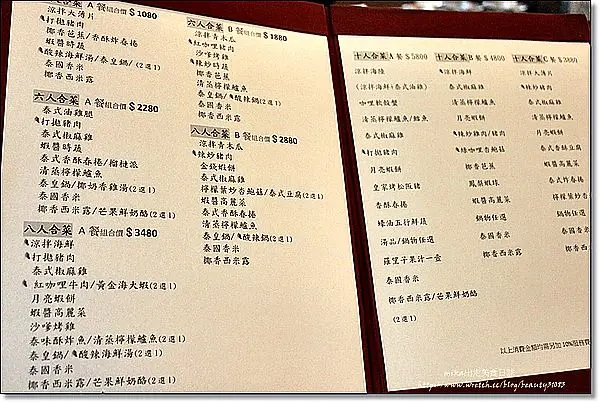 A 餐組合價 $1080
涼拌大薄片
打拋豬肉
椰香芭蕉/香酥炸春捲
蝦醬時蔬
酸辣海鮮湯/泰皇鍋/(2選1)
泰國香米
椰香西米露
六人合菜 A 餐組合價 $2280
泰式油雞腿
打拋豬肉
泰式椒麻雞
蝦醬時蔬
泰式香酥春捲/榴槤派
清蒸檸檬鱸魚
泰皇鍋/椰奶香雞湯(2選1)
泰國香米
椰香西米露/芒果鮮奶酪(2選1)
八人合菜 A 餐組合價 $3480
涼拌海鮮
打拋豬肉
泰式椒麻雞
紅咖哩牛肉/黃金海大蝦(2選1)
月亮蝦餅
蝦醬高麗菜
沙嗲烤雞
泰味酥炸魚/清蒸檸檬鱸魚(2選1)
泰皇鍋/酸辣海鮮湯(2選1)
泰國香米
椰香西米露/芒果鮮奶酪(2選1)
六人合菜 B 餐組合價 $1880
涼拌青木瓜
紅咖哩豬肉
沙嗲烤雞
辣炒時蔬
椰香芭蕉
清蒸檸檬鱸魚
泰皇鍋/酸辣鍋(2選1)
泰國香米
椰香西米露
八人合菜 B 餐組合價 $2880
涼拌青木瓜
辣炒豬肉
金錢蝦餅
泰式椒麻雞
檸檬紫炒杏鮑菇/泰式豆腐(2選1)
蝦醬高麗菜
泰式香酥春捲
清蒸檸檬鱸魚
泰皇鍋/酸辣鍋(2選1)
泰國香米
椰香西米露
十人合菜 A 餐 $5800
涼拌海陸
(涼拌海鮮+泰式油雞)
咖哩軟殼蟹
清蒸檸檬鱸魚/鱈魚
泰式椒麻雞
打拋豬肉
月亮蝦餅
皇家烤松阪豬
香酥春捲
蠔油五行鮮蔬
湯品/鍋物任選
羅望子果汁一壺
泰國香米
椰香西米露/芒果鮮奶酪
(2選1)
十人合菜 B 餐 $4800
涼拌海鮮
泰式椒麻雞
清蒸檸檬鱸魚
月亮蝦餅
辣炒豬肉/豬肉
綠咖哩杏鮑菇
椰香芭蕉
鳳梨蝦球
蝦醬高麗菜
鍋物任選
泰國香米
椰香西米露
十人合菜 C 餐 $3880
涼拌大薄片
辣炒豬肉
泰式椒麻雞
月亮蝦餅
泰式香酥豆腐
蝦醬高麗菜
清蒸檸檬鱸魚
泰式香酥春
檸檬紫炒杏
鍋物任選
泰國香米
椰香西
以上消費金額均需另加 10%服務費
http://www.wretch.cc/blog/beauty31083